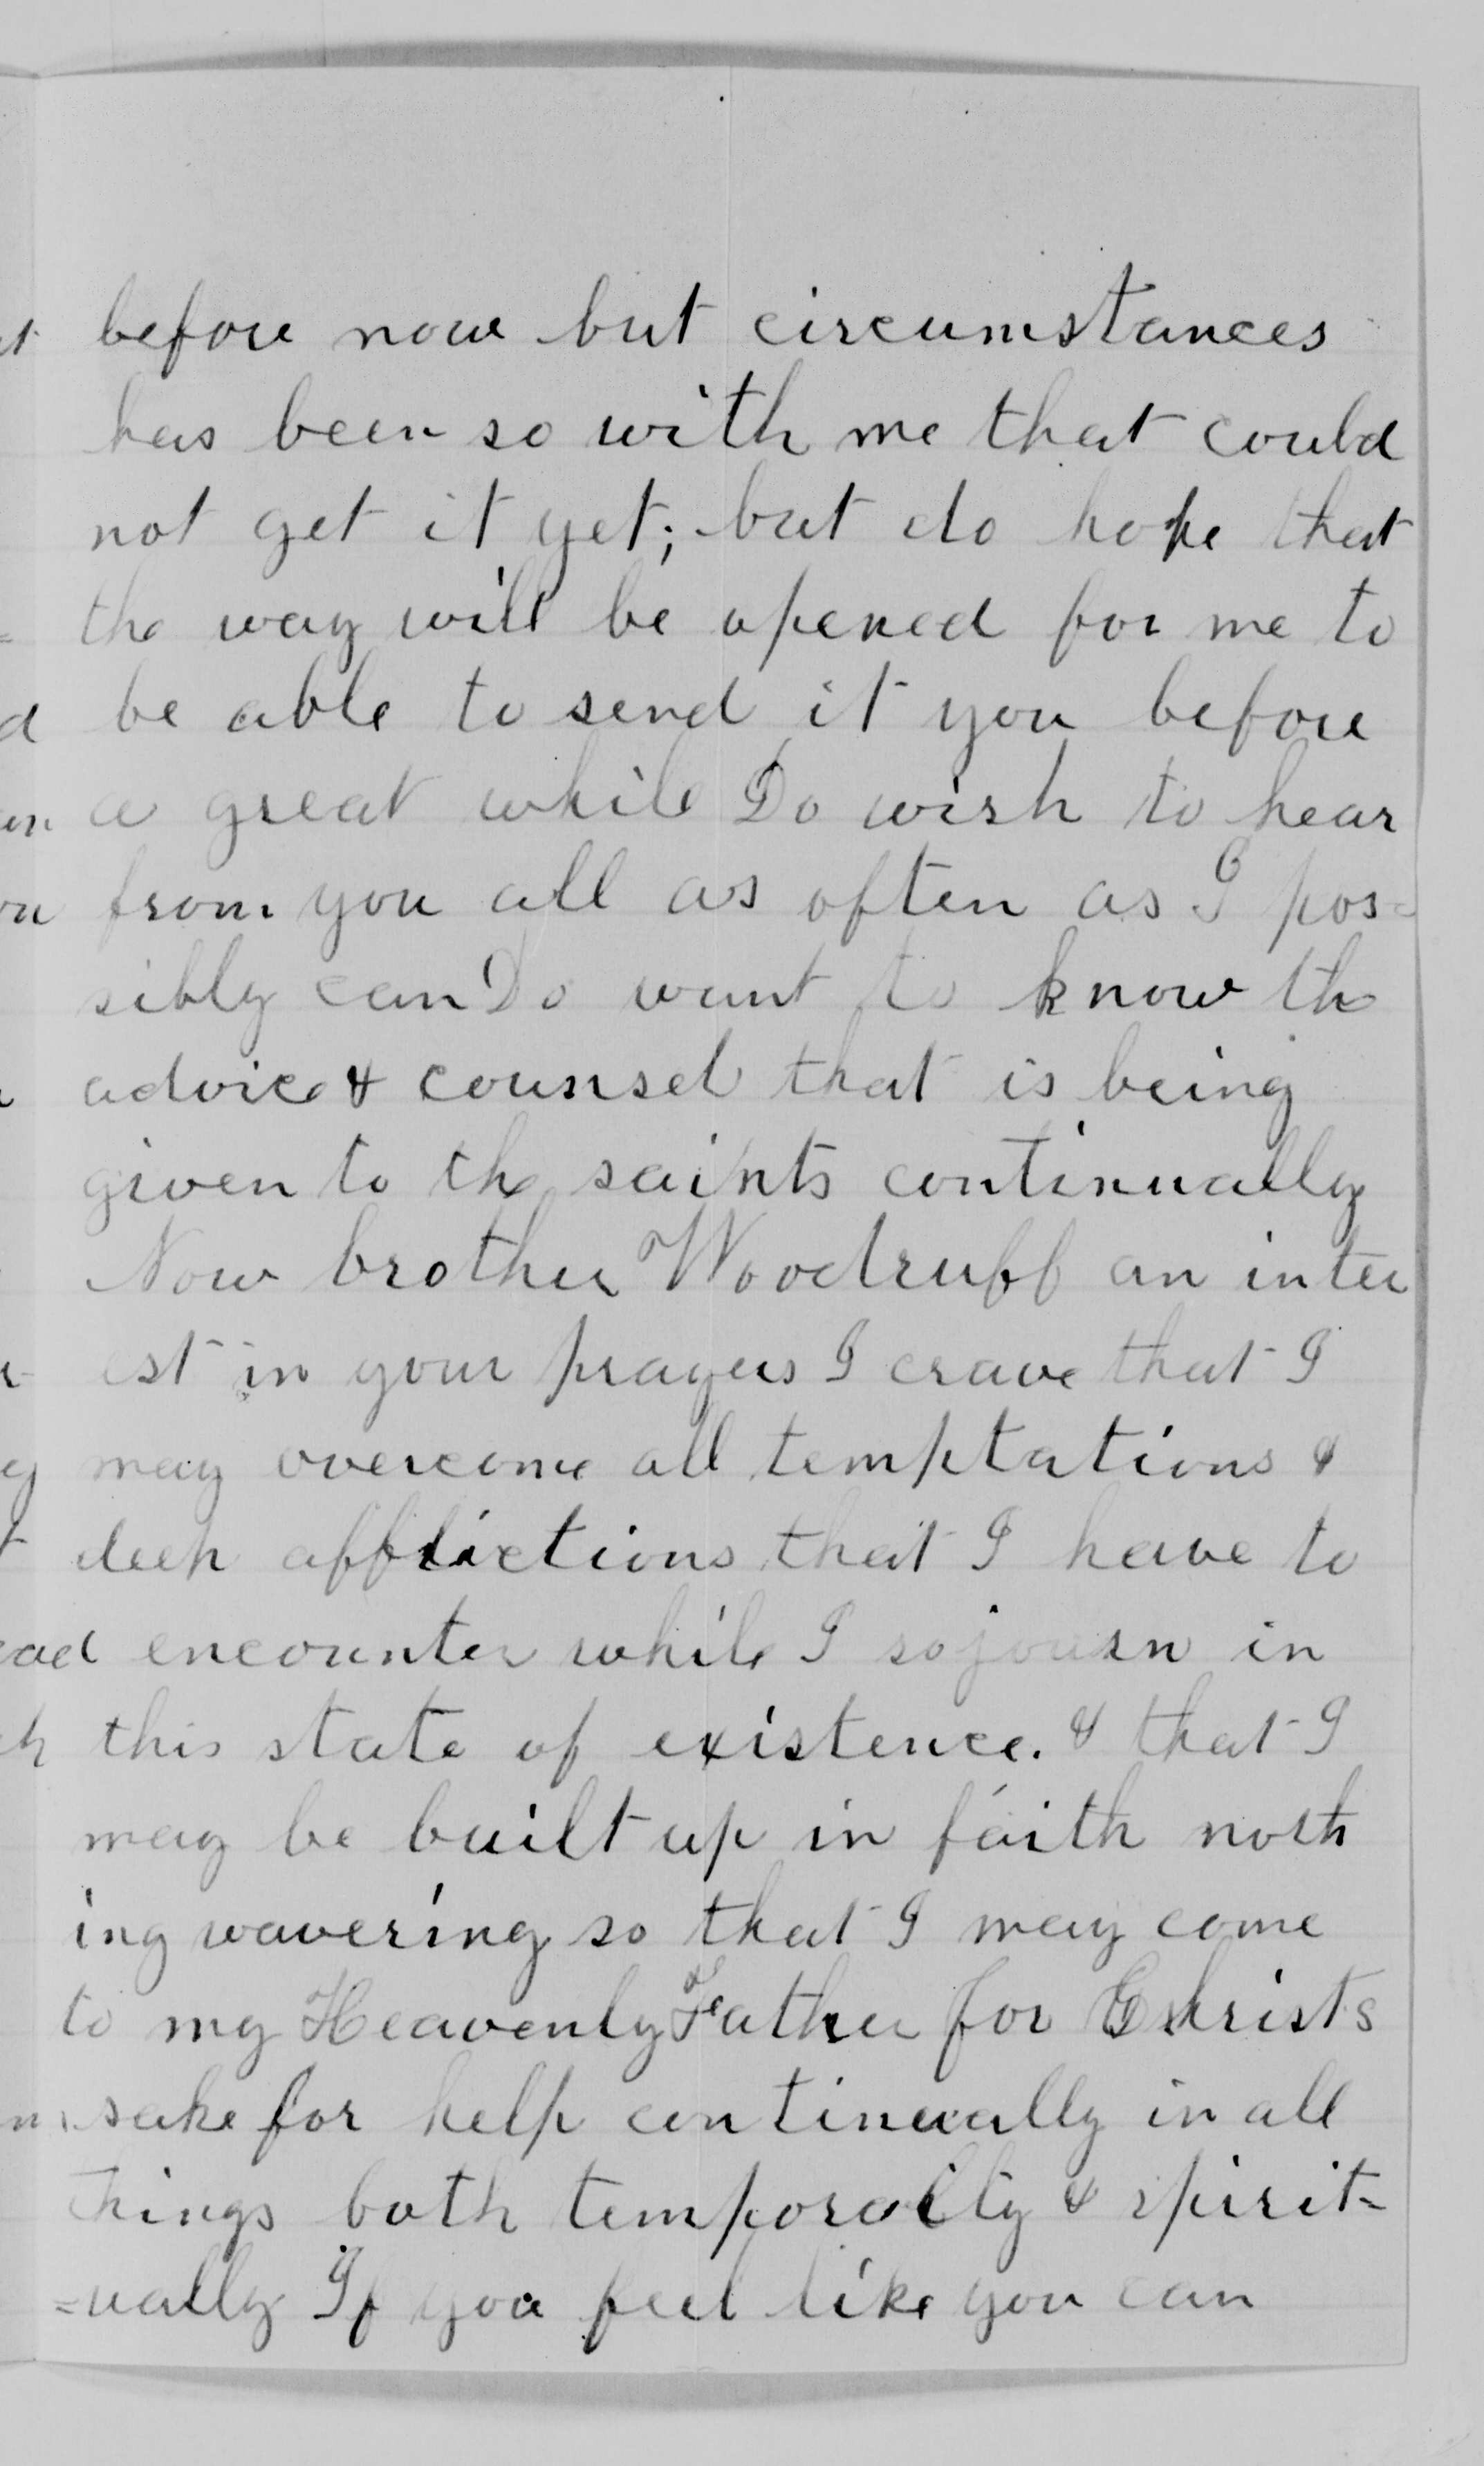 before now but circumstances
has been so with me that could
not get it yet; but do hope that
the way will be opened for me to
be able to send it you before
a great while Do wish to hear
from you all as often as I pos-
sibly can Do want to know the
advice & counsel that is being
given to the saints continually
Now brother Woodruff an inter
est in your prayers I crave that I
may overcome all temptations &
deep afflictions that I have to
encounter while I sojourn in
this state of existence. & that I
may be built up in faith noth
ing wavering so that I may come
to my Heavenly Father for Christs
sake for help continually in all
things both temporally & spirit-
=ually If you feel like you can